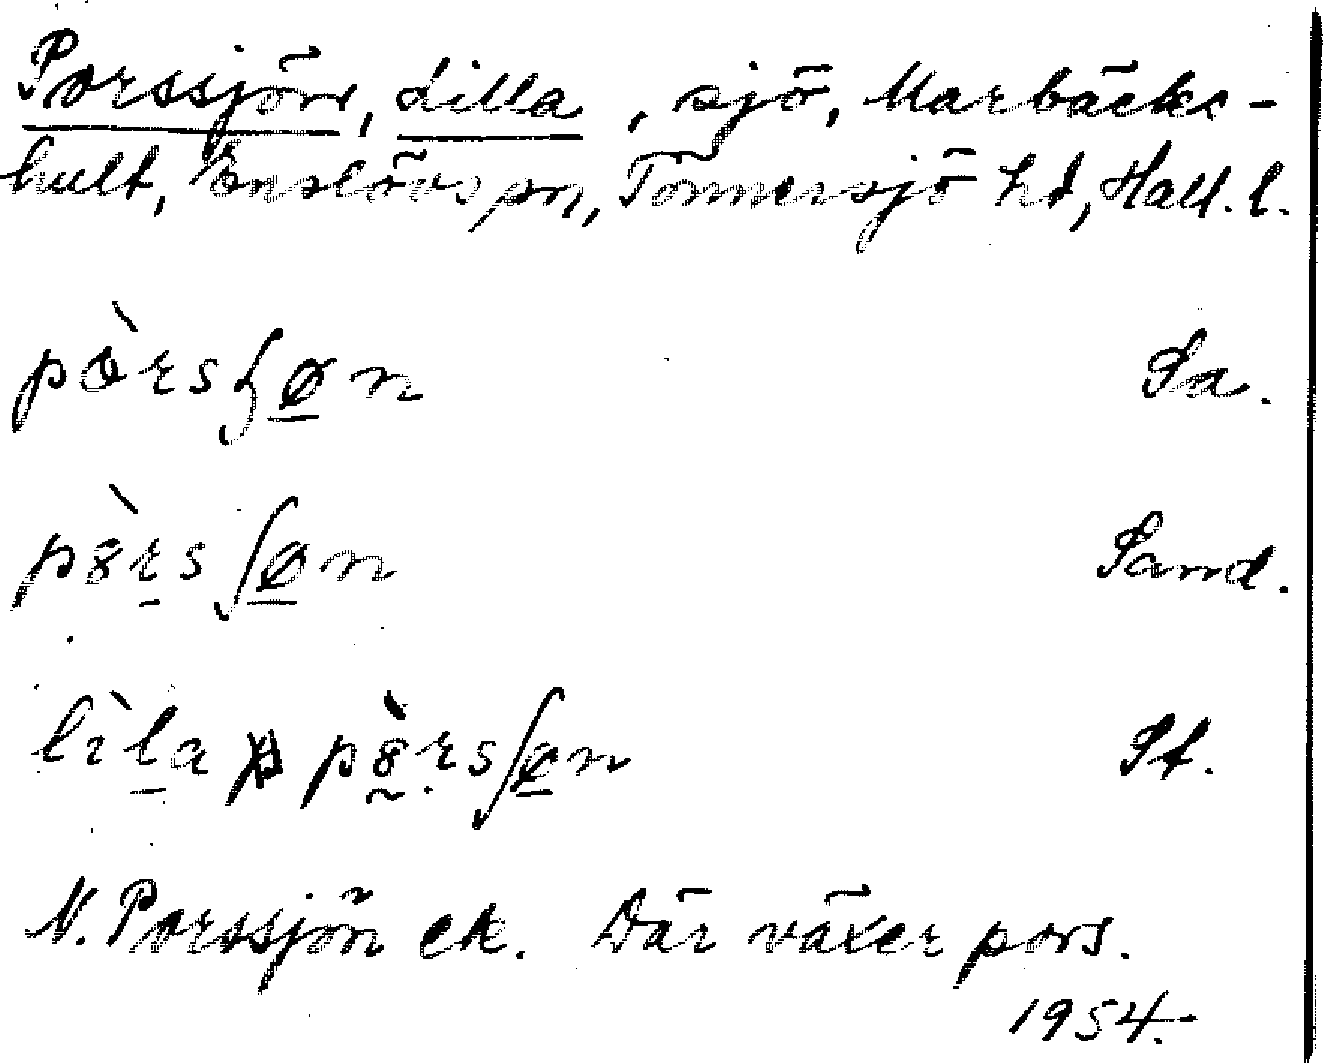 Porssjön, Lilla, sjö, Marbäcks-
hult, Enslövs sn, Tönnersjö hd, Hall. l.
pòrsɧøn Sa.
pȣ̀rsʃøn Sand.
lìla pȣ̀rsʃøn St.
N. Porssjön ek. Där växer pors.
1954.